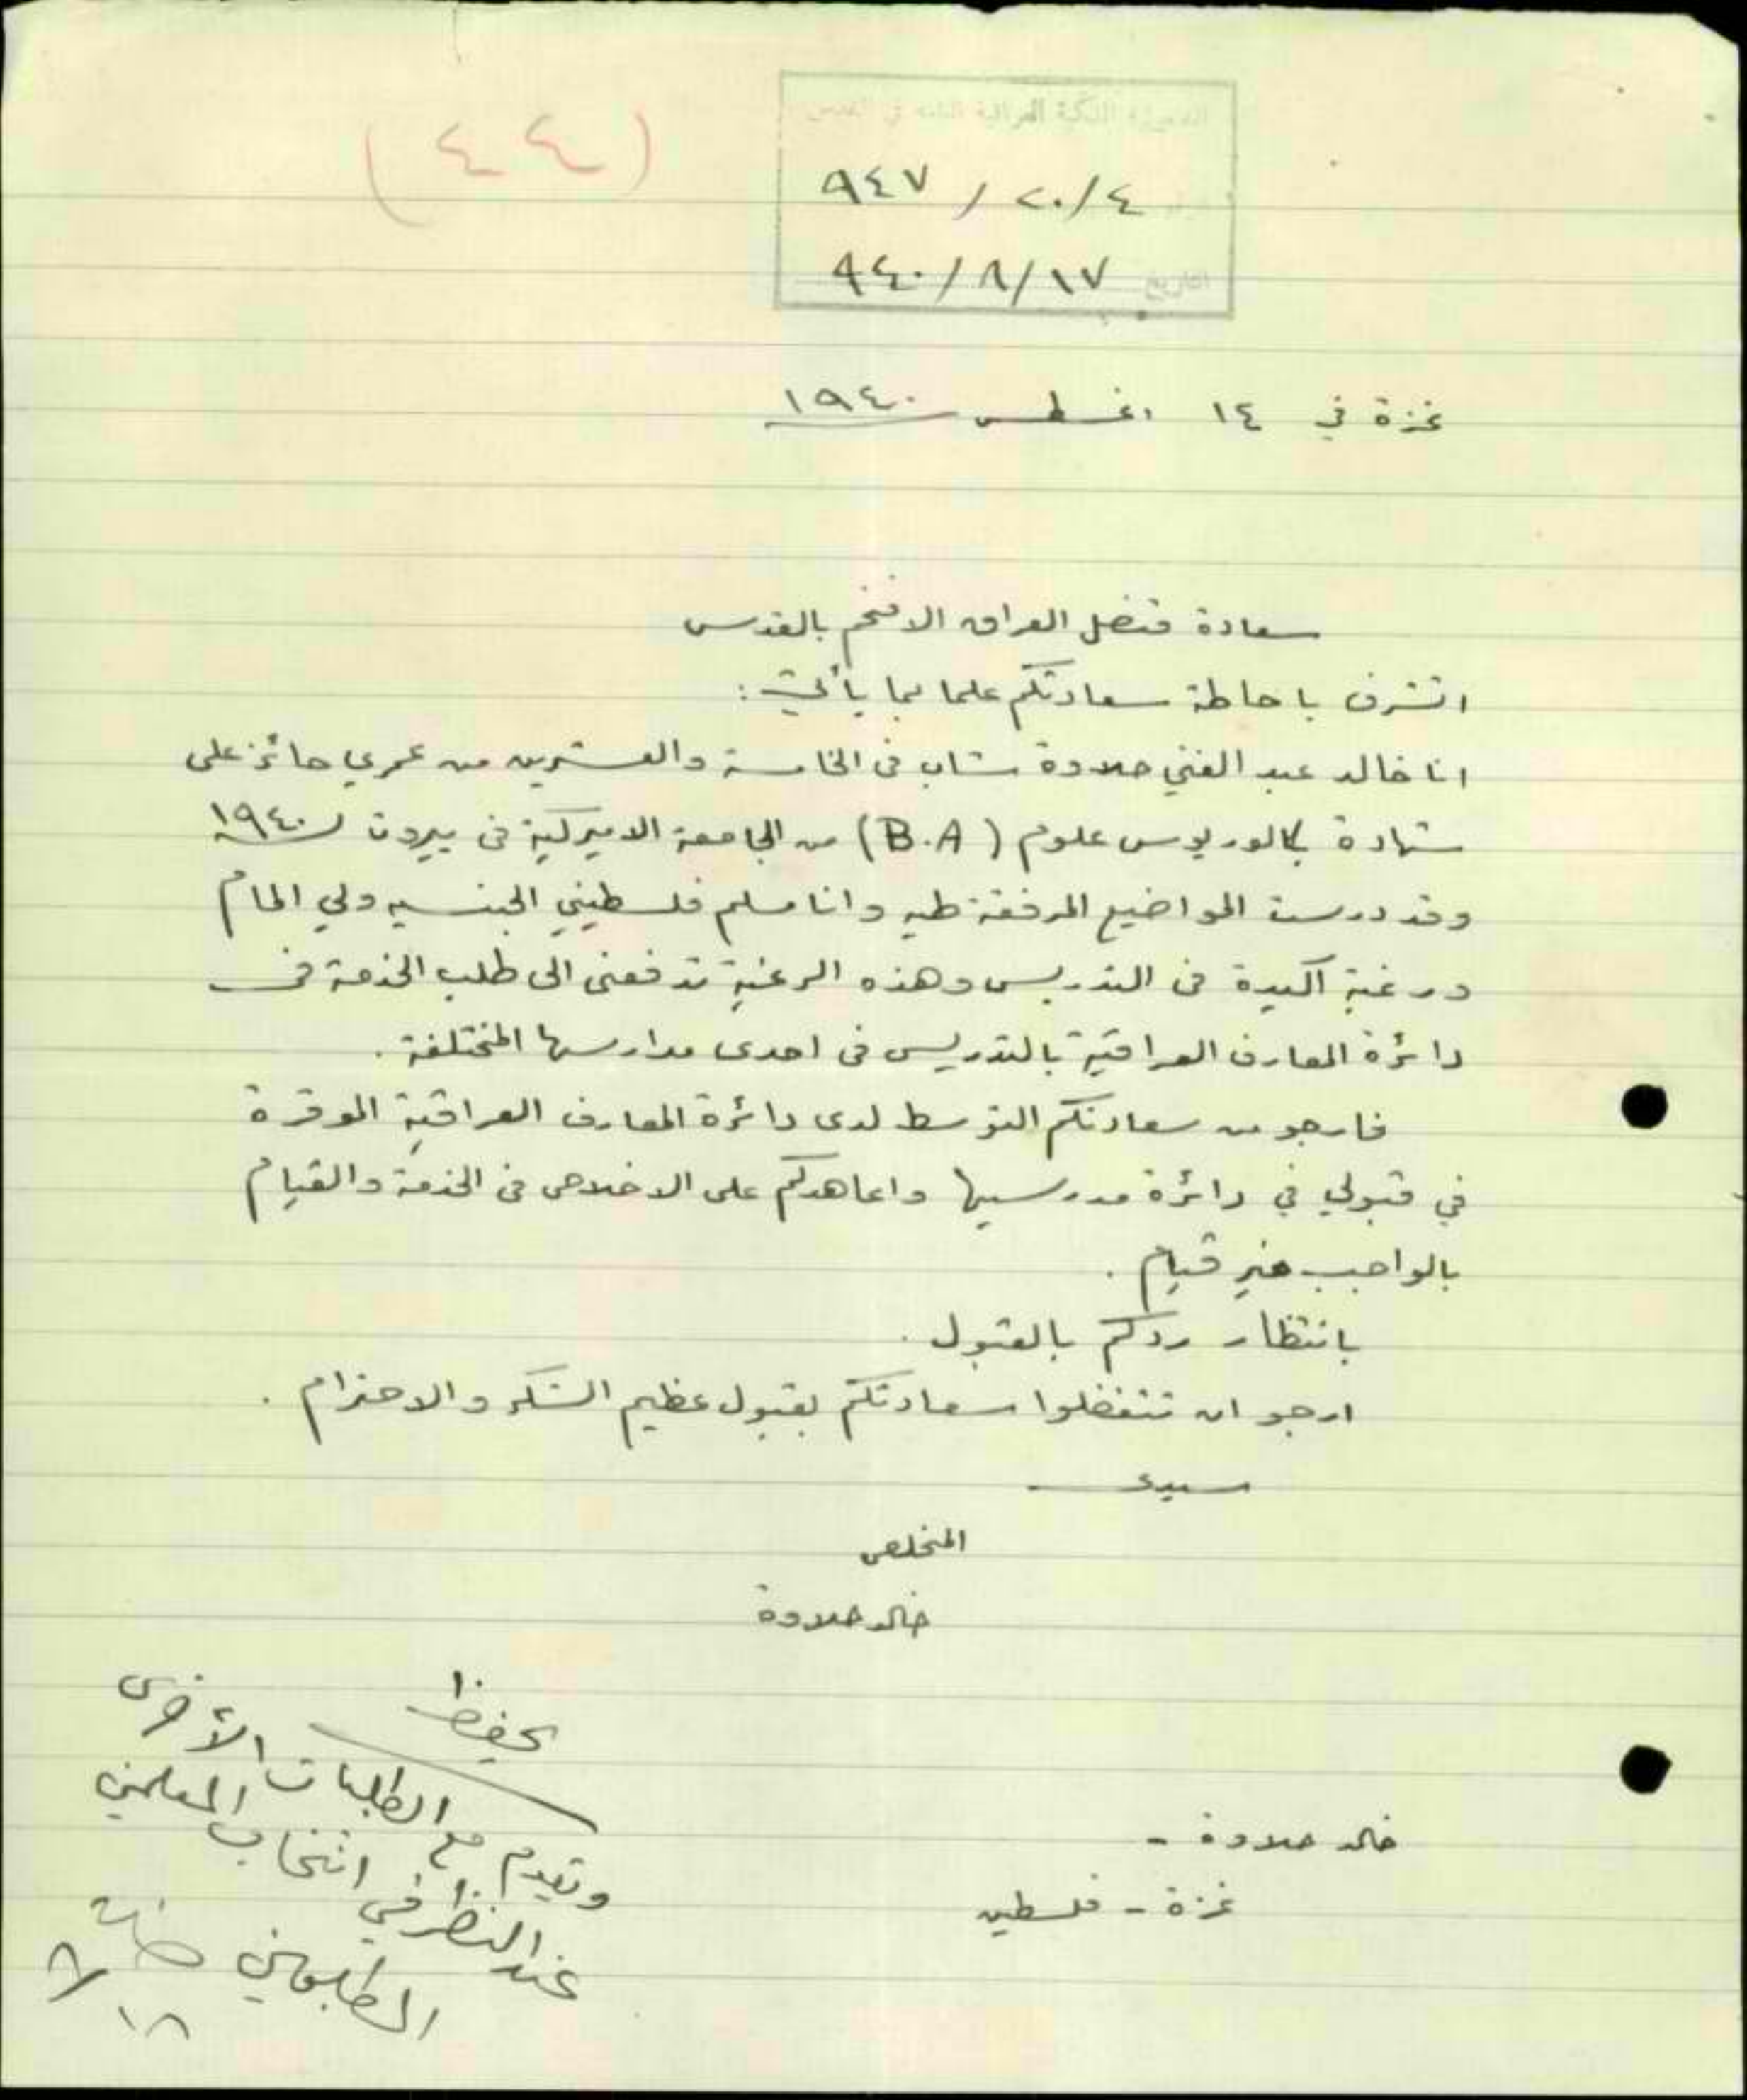 (٤٤)
القنصلية الملكية العراقية العامة في القدس
٩٤٧ / ٢٠/٤
التاريخ ٩٤٠/٨/١٧
غزة في ١٤ اغسطس ١٩٤٠
سعادة قنصل العراق الافخم بالقدس
اتشرف باحاطة سعادتكم علما بما يأتي :
انا خالد عبد الغني حلاوة شاب في الخامسة والعشرين من عمري حائز على
شهادة بكالوريوس علوم (B.A) من الجامعة الاميركية في بيروت لسنة ١٩٤٠
وقد درست المواضيع المرفقة طيه وانا مسلم فلسطيني الجنسيه ولي المام
ورغبة اكيدة في التدريس وهذه الرغبة تدفعني الى طلب الخدمة في
دائرة المعارف العراقية بالتدريس في احدى مدارسها المختلفة .
فارجو من سعادتكم التوسط لدى دائرة المعارف العراقية الموقرة
في قبولي في دائرة مدرسيها واعاهدكم على الاخلاص في الخدمة والقيام
بالواجب خير قيام .
بانتظار ردكم بالقبول .
ارجو ان تتفضلوا سعادتكم بقبول عظيم الشكر والاحترام .
سيدي
المخلص
خالد حلاوة
خالد حلاوة -
غزة - فلسطين
يحفظ
وتقدم مع الطلبات الأخرى
عند النظر في انتخاب المعلمين
المطلوبين
١٨/٨